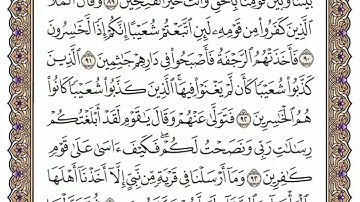 بَيْنَنَا وَبَيْنَ قَوْمِنَا بِالْحَقِّ وَأَنتَ خَيْرُ الْفَاتِحِينَ ٨٩ وَقَالَ الْمَلَأُ
الَّذِينَ كَفَرُوا مِن قَوْمِهِ لَئِنِ اتَّبَعْتُمْ شُعَيْبًا إِنَّكُمْ إِذًا لَّخَاسِرُونَ
٩٠ فَأَخَذَتْهُمُ الرَّجْفَةُ فَأَصْبَحُوا فِي دَارِهِمْ جَاثِمِينَ ٩١ الَّذِينَ
كَذَّبُوا شُعَيْبًا كَأَن لَّمْ يَغْنَوْا فِيهَا الَّذِينَ كَذَّبُوا شُعَيْبًا كَانُوا
هُمُ الْخَاسِرِينَ ٩٢ فَتَوَلَّىٰ عَنْهُمْ وَقَالَ يَا قَوْمِ لَقَدْ أَبْلَغْتُكُمْ
رِسَالَاتِ رَبِّي وَنَصَحْتُ لَكُمْ فَكَيْفَ ءَاسَىٰ عَلَىٰ قَوْمٍ
كَافِرِينَ ٩٣ وَمَا أَرْسَلْنَا فِي قَرْيَةٍ مِّن نَّبِيٍّ إِلَّا أَخَذْنَا أَهْلَهَا